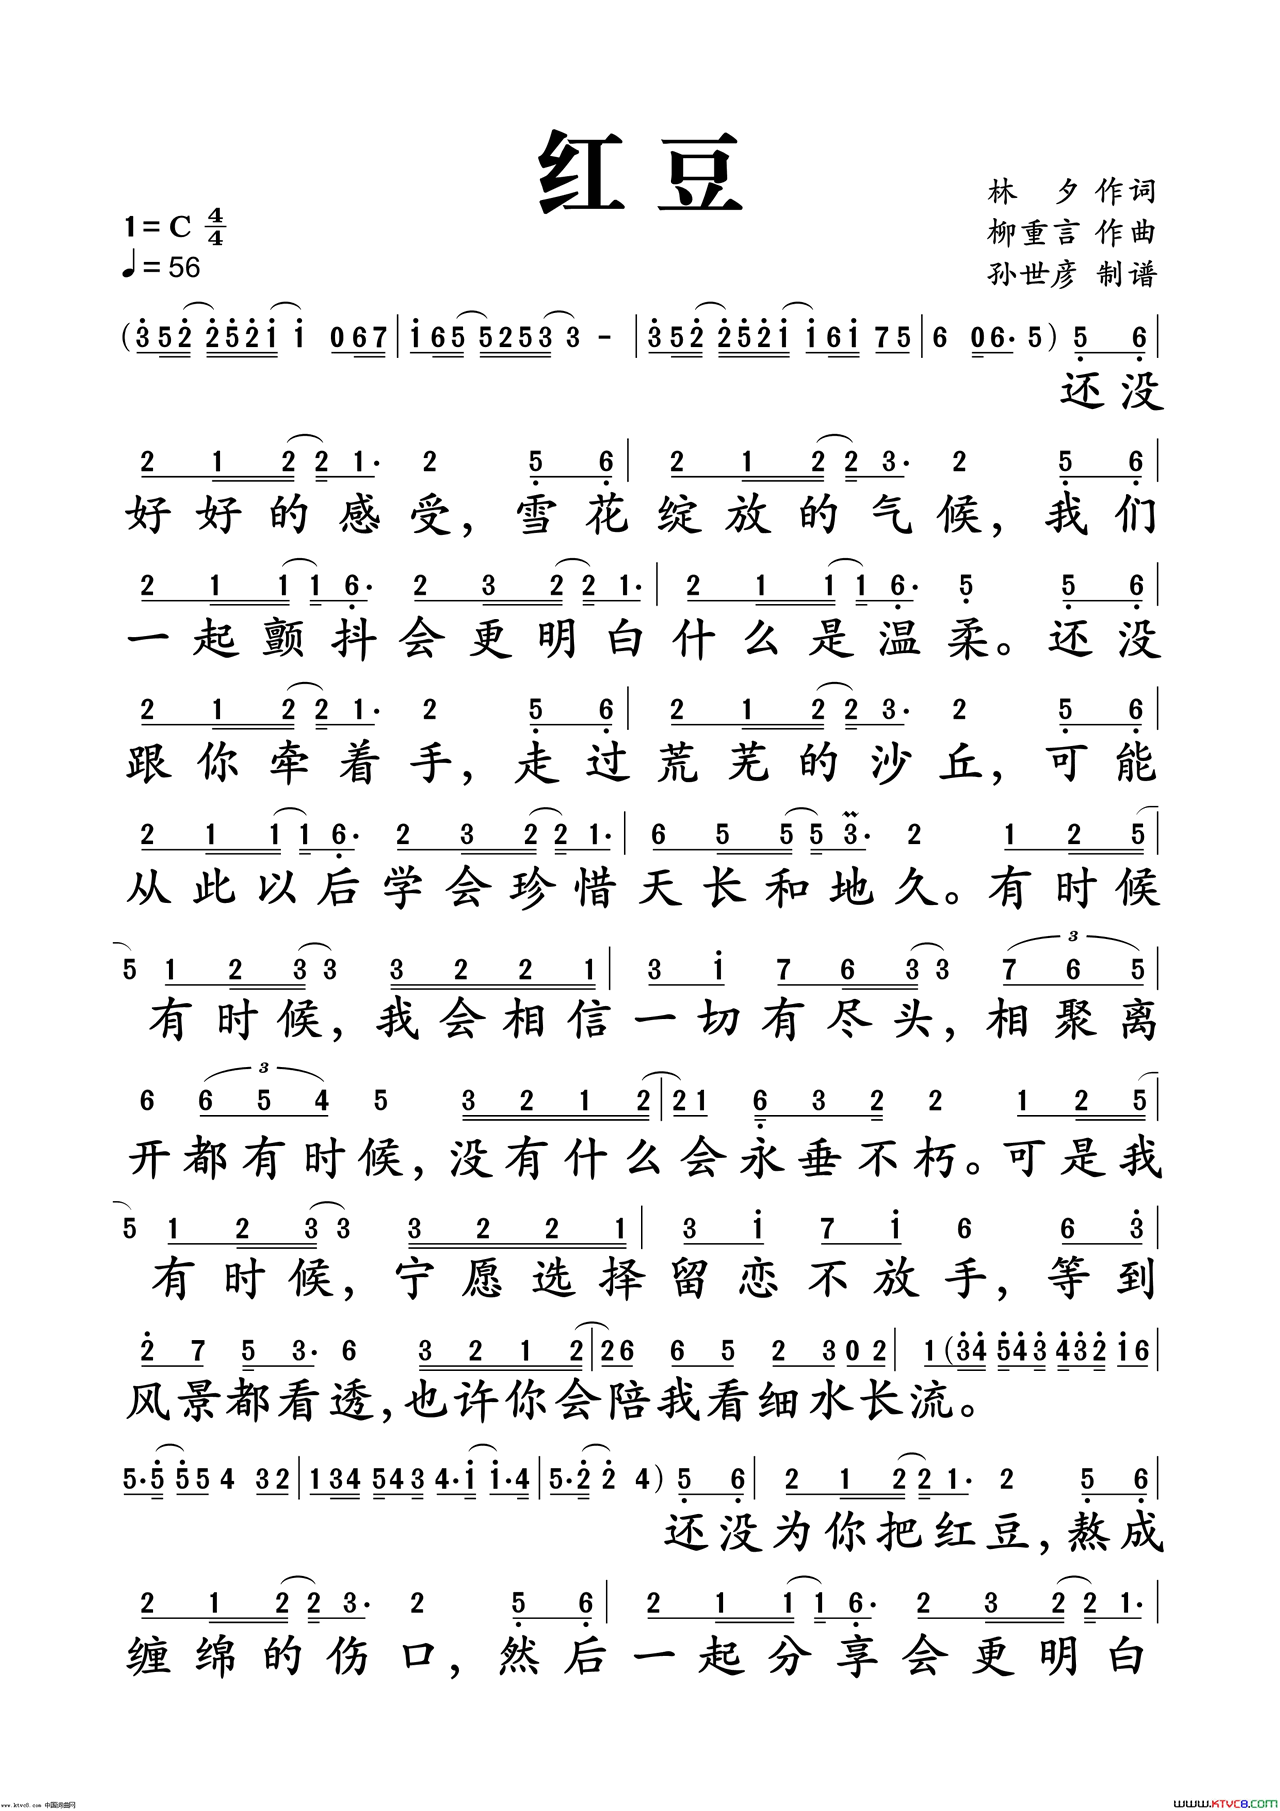 红豆
林 夕 作词
1=C 4/4
柳重言 作曲
♩=56
孙世彦 制谱
(3 5 2 2 5 2 1 1 0 6 7 | 1 6 5 5 2 5 3 3 - | 3 5 2 2 5 2 1 1 6 1 7 5 | 6 0 6. 5) 5 6 |
还没
2 1 2 2 1. 2 5 6 | 2 1 2 2 3. 2 5 6 |
好好的感受，雪花绽放的气候，我们
2 1 1 1 6. 2 3 2 2 1. | 2 1 1 1 6. 5 5 6 |
一起颤抖会更明白什么是温柔。还没
2 1 2 2 1. 2 5 6 | 2 1 2 2 3. 2 5 6 |
跟你牵着手，走过荒芜的沙丘，可能
2 1 1 1 6. 2 3 2 2 1. | 6 5 5 5 3. 2 1 2 5 |
从此以后学会珍惜天长和地久。有时候
5 1 2 3 3 3 2 2 1 | 3 1 7 6 3 3 7 6 5 |
3
有时候，我会相信一切有尽头，相聚离
3
6 6 5 4 5 3 2 1 2 | 2 1 6 3 2 2 1 2 5 |
开都有时候，没有什么会永垂不朽。可是我
5 1 2 3 3 3 2 2 1 | 3 1 7 1 6 6 3 |
有时候，宁愿选择留恋不放手，等到
2 7 5 3. 6 3 2 1 2 | 2 6 6 5 2 3 0 2 | 1 (3 4 5 4 3 4 3 2 1 6 |
风景都看透，也许你会陪我看细水长流。
5. 5 5 5 4 3 2 | 1 3 4 5 4 3 4. 1 1. 4 | 5. 2 2 4) 5 6 | 2 1 2 2 1. 2 5 6 |
还没为你把红豆，熬成
2 1 2 2 3. 2 5 6 | 2 1 1 1 6. 2 3 2 2 1. |
缠绵的伤口，然后一起分享会更明白
www.ktvc8.com 中国词曲网
WWW.KTVC8.COM